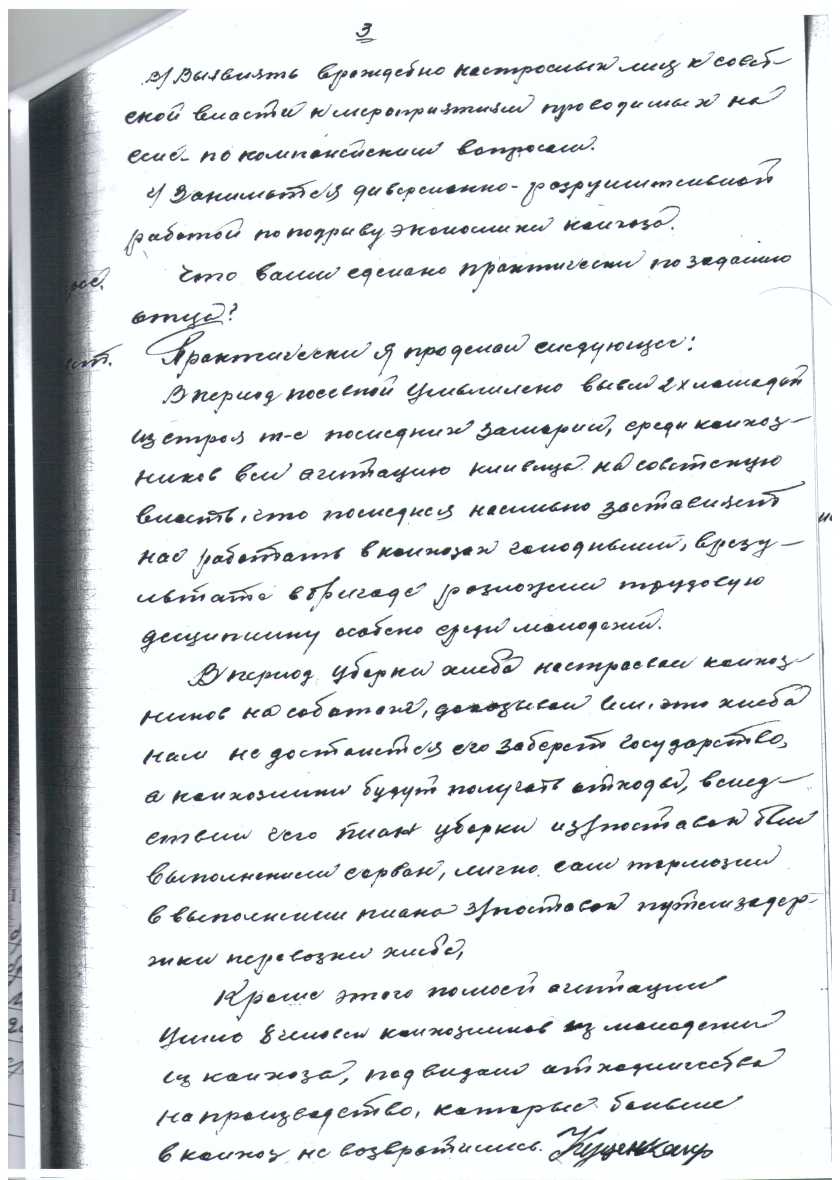 3
в) Выявлять враждебно настроеных лиц к совет-
ской власти к мероприятиям проводимых на
селе - по компанейским вопросам.
г) Заниматся диверсионно-разрушительной
работой по подрыву экономики колхоза.
Что вами сделано практически по заданию
отца?
ст. Практически я проделал следующее:
В период посевной умышлено вывел 2х лошадей
из строя т-е последних заморил, среди колхоз-
ников вел агитацию клевеща на советскую
власть, что последняя насильно заставляет
нас работать в колхозах голодными, в резу-
льтате в бригаде разложил трудовую
дисциплину особено среди молодежи.
В период уборки хлеба настраевал колхоз-
ников на саботаж, доказывал им, что хлеба
нам не достанется его заберет государство,
а колхозники будут получать отходы, вслед-
ствии чего план уборки и з/поставок был
выполнением сорван, лично сам тормозил
в выполнении плана з/поставок путем задер-
жки перевозки хлеба,
Кроме этого помоей агитации
ушло 8 человек колхозников из молодежи
из колхоза, под видом отходничества
на производство, которые больше
в колхоз не возвратились.